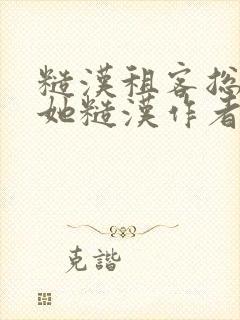 糙漢租客捴
她糙漢作者
克諧